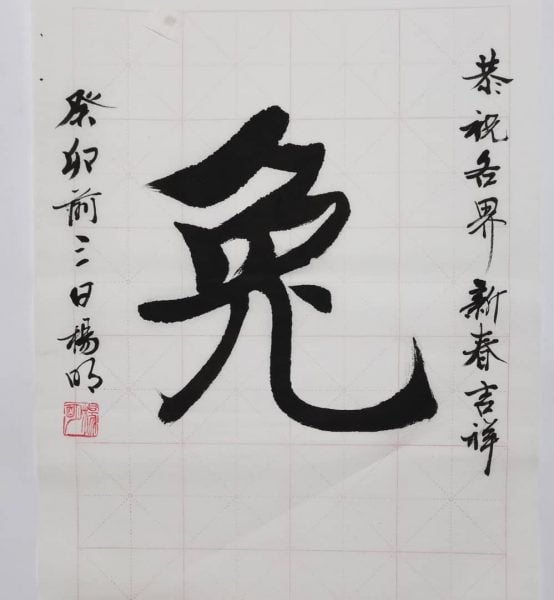 恭祝各界 新春吉祥
兔
癸卯前三日楊明
楊明